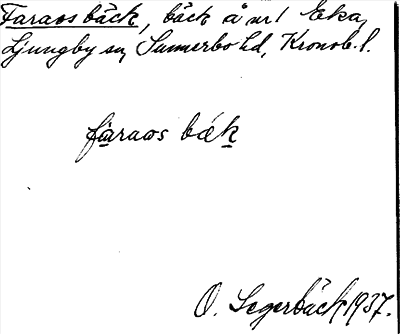 Faraos bäck, bäck å nr 1 Eka,
Ljungby sn, Sunnerbo hd, Kronob. l.
fàraos bæk
O. Segerbäck 1937.